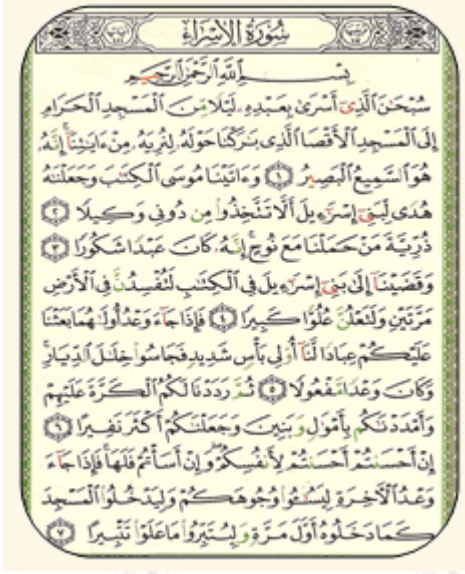 سُورَةُ الإِسۡرَاءِ
بِسۡمِ ٱللَّهِ ٱلرَّحۡمَٰنِ ٱلرَّحِيمِ
سُبۡحَٰنَ ٱلَّذِيٓ أَسۡرَىٰ بِعَبۡدِهِۦ لَيۡلٗا مِّنَ ٱلۡمَسۡجِدِ ٱلۡحَرَامِ
إِلَى ٱلۡمَسۡجِدِ ٱلۡأَقۡصَا ٱلَّذِي بَٰرَكۡنَا حَوۡلَهُۥ لِنُرِيَهُۥ مِنۡ ءَايَٰتِنَآۚ إِنَّهُۥ
هُوَ ٱلسَّمِيعُ ٱلۡبَصِيرُ ١ وَءَاتَيۡنَا مُوسَى ٱلۡكِتَٰبَ وَجَعَلۡنَٰهُ
هُدٗى لِّبَنِيٓ إِسۡرَٰٓءِيلَ أَلَّا تَتَّخِذُواْ مِن دُونِي وَكِيلٗا ٢
ذُرِّيَّةَ مَنۡ حَمَلۡنَا مَعَ نُوحٍۚ إِنَّهُۥ كَانَ عَبۡدٗا شَكُورٗا ٣
وَقَضَيۡنَآ إِلَىٰ بَنِيٓ إِسۡرَٰٓءِيلَ فِي ٱلۡكِتَٰبِ لَتُفۡسِدُنَّ فِي ٱلۡأَرۡضِ
مَرَّتَيۡنِ وَلَتَعۡلُنَّ عُلُوّٗا كَبِيرٗا ٤ فَإِذَا جَآءَ وَعۡدُ أُولَىٰهُمَا بَعَثۡنَا
عَلَيۡكُمۡ عِبَادٗا لَّنَآ أُوْلِي بَأۡسٖ شَدِيدٖ فَجَاسُواْ خِلَٰلَ ٱلدِّيَارِۚ
وَكَانَ وَعۡدٗا مَّفۡعُولٗا ٥ ثُمَّ رَدَدۡنَا لَكُمُ ٱلۡكَرَّةَ عَلَيۡهِمۡ
وَأَمۡدَدۡنَٰكُم بِأَمۡوَٰلٖ وَبَنِينَ وَجَعَلۡنَٰكُمۡ أَكۡثَرَ نَفِيرًا ٦
إِنۡ أَحۡسَنتُمۡ أَحۡسَنتُمۡ لِأَنفُسِكُمۡۖ وَإِنۡ أَسَأۡتُمۡ فَلَهَاۚ فَإِذَا جَآءَ
وَعۡدُ ٱلۡأٓخِرَةِ لِيَسُـُٔواْ وُجُوهَكُمۡ وَلِيَدۡخُلُواْ ٱلۡمَسۡجِدَ
كَمَا دَخَلُوهُ أَوَّلَ مَرَّةٖ وَلِيُتَبِّرُواْ مَا عَلَوۡاْ تَتۡبِيرًا ٧